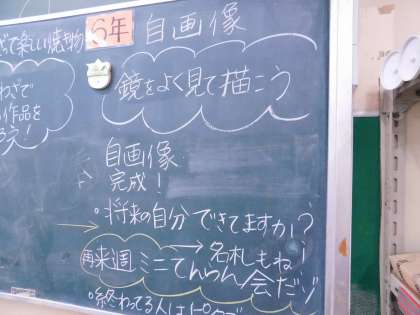 で楽しい焼き物
わざで
作品を
う!
6年 自画像
鏡をよく見て描こう
自画像
完成!
・将来の自分できてますか!?
再来週ミニてんらん会だゾ!
→名札もね
・終わってる人は